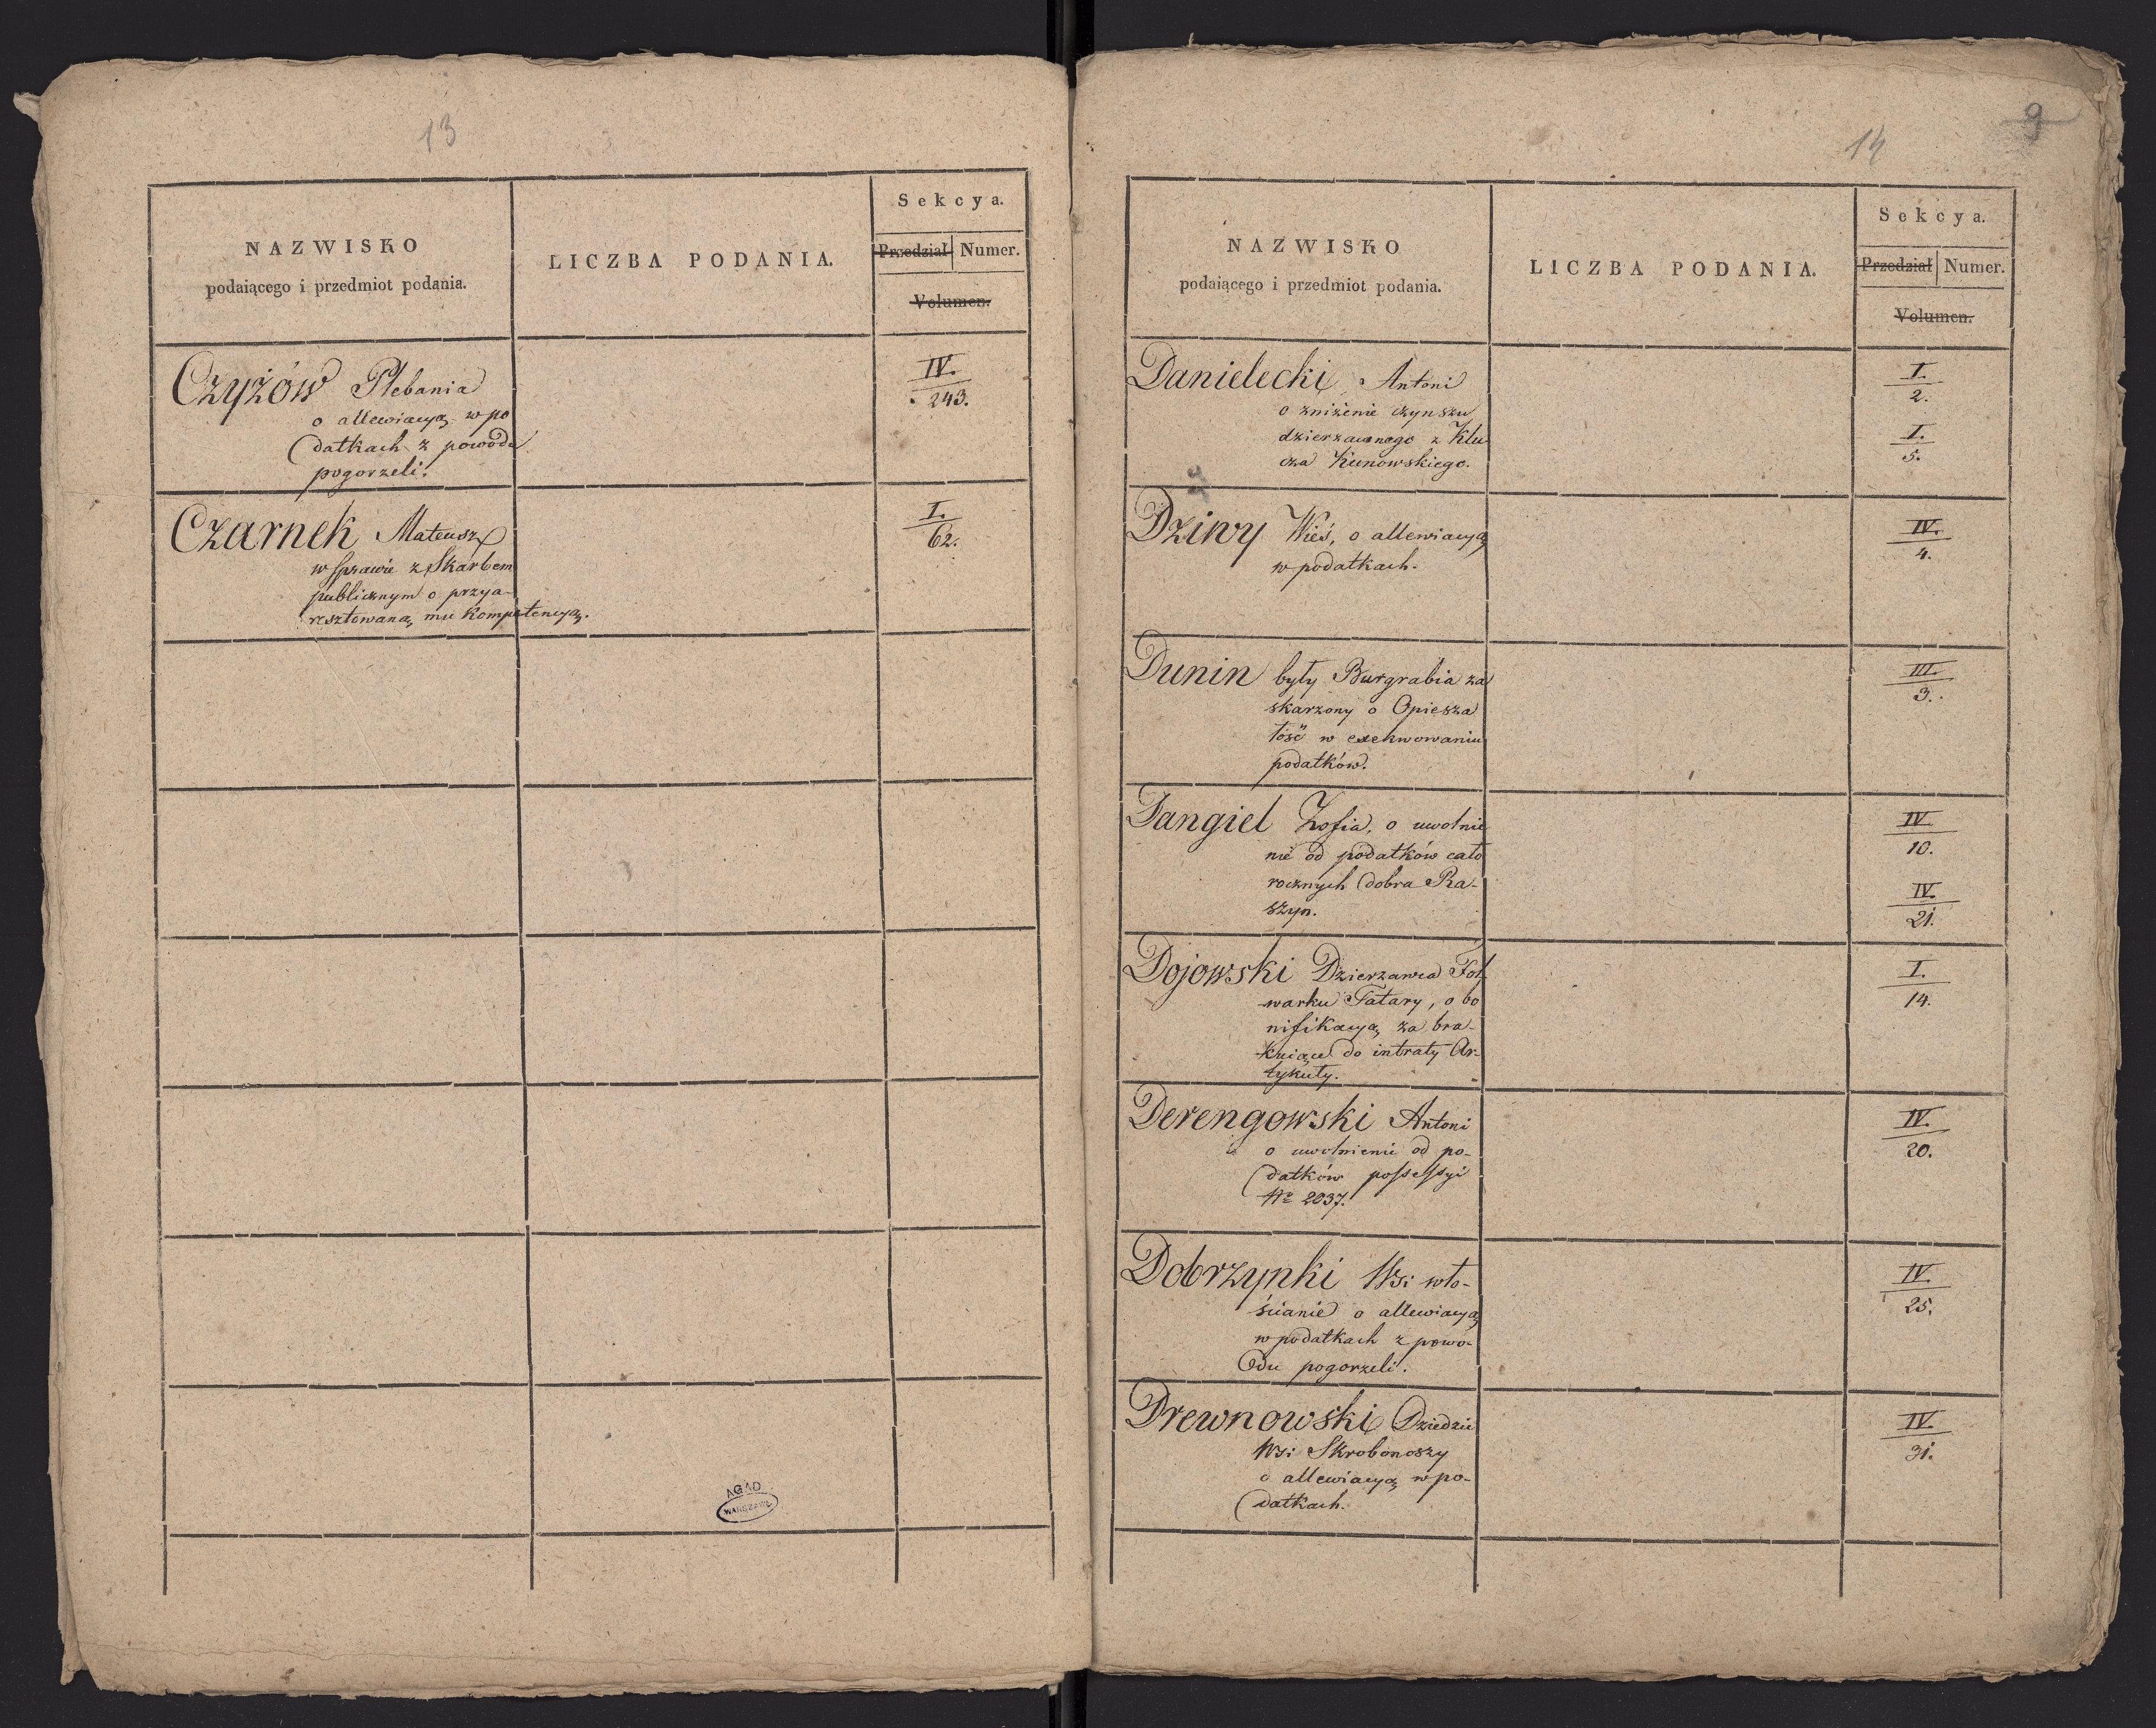 13
NAZWISKO
podaiącego i przedmiot podania.
LICZBA PODANIA.
Sekcya.
Przedział Numer.
Volumen.
Czyżów Plebania
o allewiacyą w po
datkach z powodu
pogorzeli.
IV.
243.
Czarnek Mateusz
w sprawie z Skarbem
publicznym o przya-
resztowaną mu kompetencyą.
I.
62.
AGAD
WARSZAWA
9
14
NAZWISKO
podaiącego i przedmiot podania.
LICZBA PODANIA.
Sekcya.
Przedział Numer.
Volumen.
Danielecki Antoni
o zniżenie czynszu
dzierzawnego z Klu
cza Kunowskiego.
I.
2.
I.
5.
Dziwy Wieś, o allewiacyą
w podatkach.
IV.
4.
Dunin były Burgrabia za
skarzony o Opiesza
łość w exekwowaniu
podatków.
III.
3.
Dangiel Zofia, o uwolnie
nie od podatków cało
rocznych dobra Ra-
szyn.
IV.
10.
IV.
21.
Dojowski Dzierzawca Fol
warku Tatary, o bo
nifikacyą za bra-
kuiące do intraty Ar-
tykuły.
I.
14.
Derengowski Antoni
o uwolnienie od po-
datków possessyi
No 2037.
IV.
20.
Dobrzynki Wsi wło-
ścianie o allewiacyą
w podatkach z powo-
du pogorzeli.
IV.
25.
Drewnowski Dziedzic
Wsi Skrobonoszy
o allewiacyą w po-
datkach.
IV.
31.